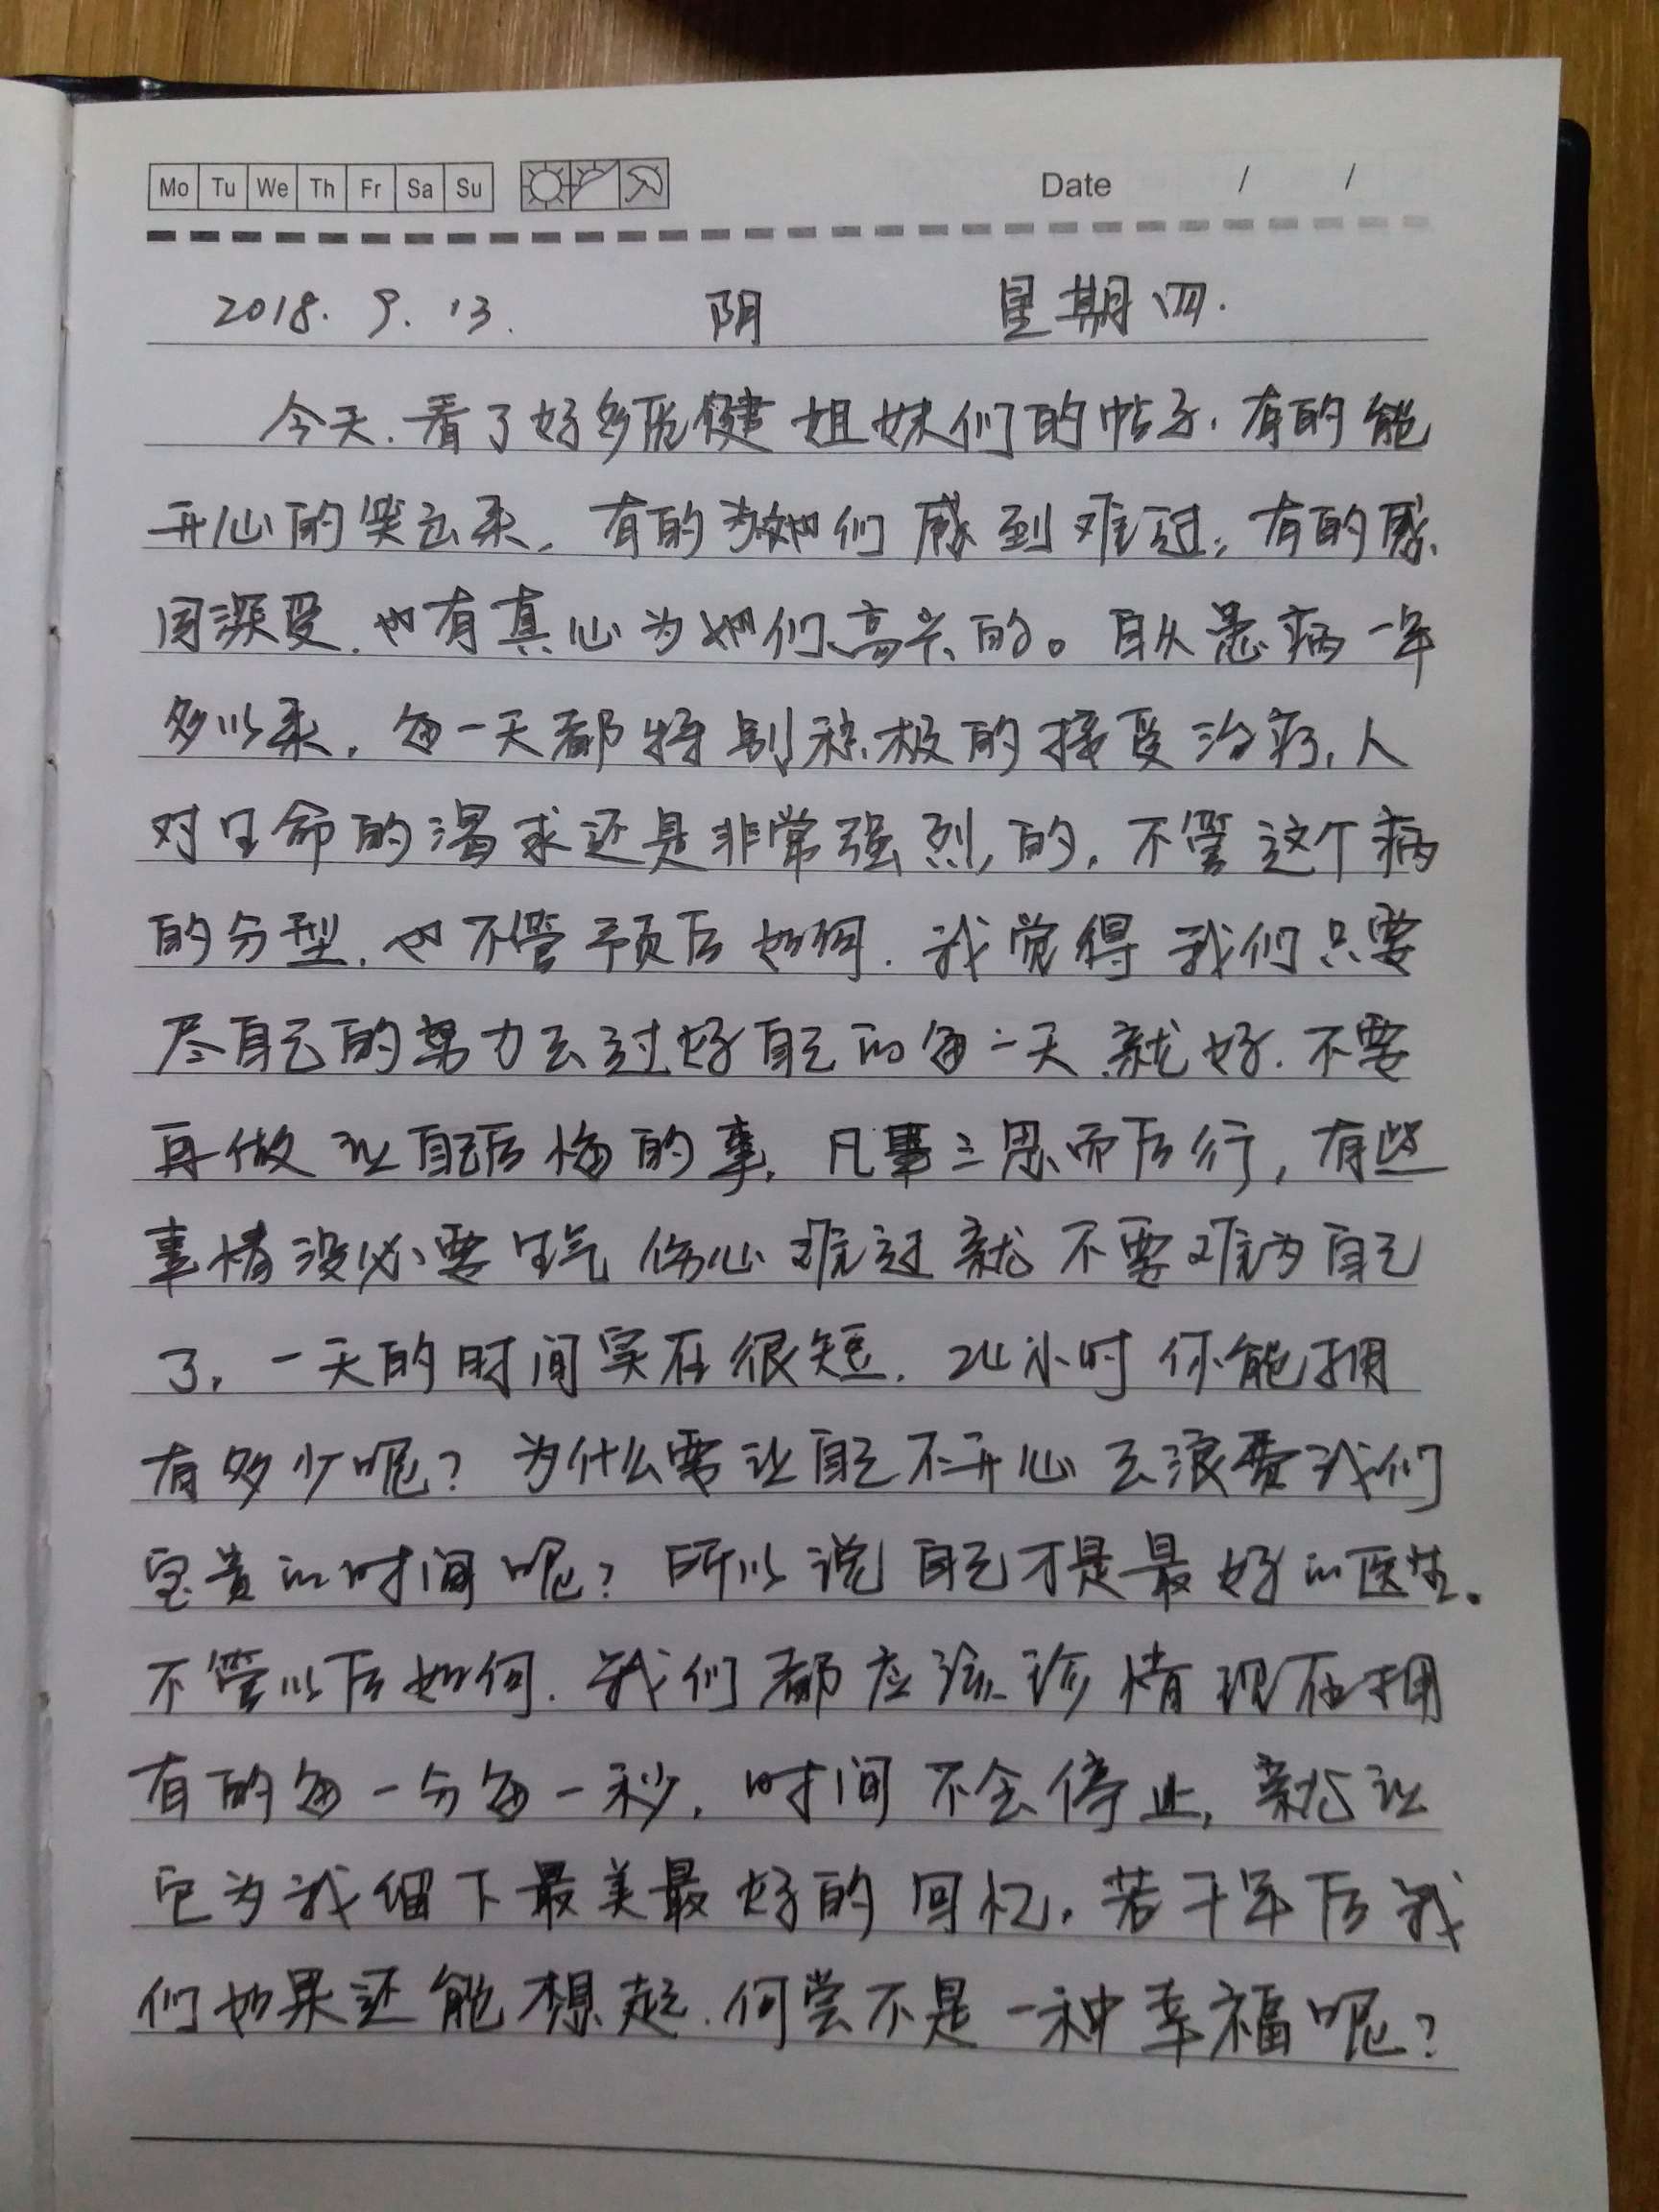 Mo Tu We Th Fr Sa Su Date / /
2018. 9. 13. 阴 星期四.
今天.看了好多院健姐妹们的帖子.有的能
开心的笑出来,有的为她们感到难过,有的感
同深受.也有真心为她们高兴的。自从患病一年
多以来,每一天都特别积极的接受治疗,人
对生命的渴求还是非常强烈的,不管这个病
的分型.也不管预后如何.我觉得我们只要
尽自己的努力去过好自己的每一天就好.不要
再做让自己后悔的事,凡事三思而后行,有些
事情没必要生气伤心难过就不要难为自己
了,一天的时间实在很短.24小时你能拥
有多少呢?为什么要让自己不开心去浪费我们
宝贵的时间呢?所以说自己才是最好的医生。
不管以后如何.我们都应该珍惜现在拥
有的每一分每一秒,时间不会停止,就让
它为我留下最美最好的回忆,若干年后我
们如果还能想起.何尝不是一种幸福呢?